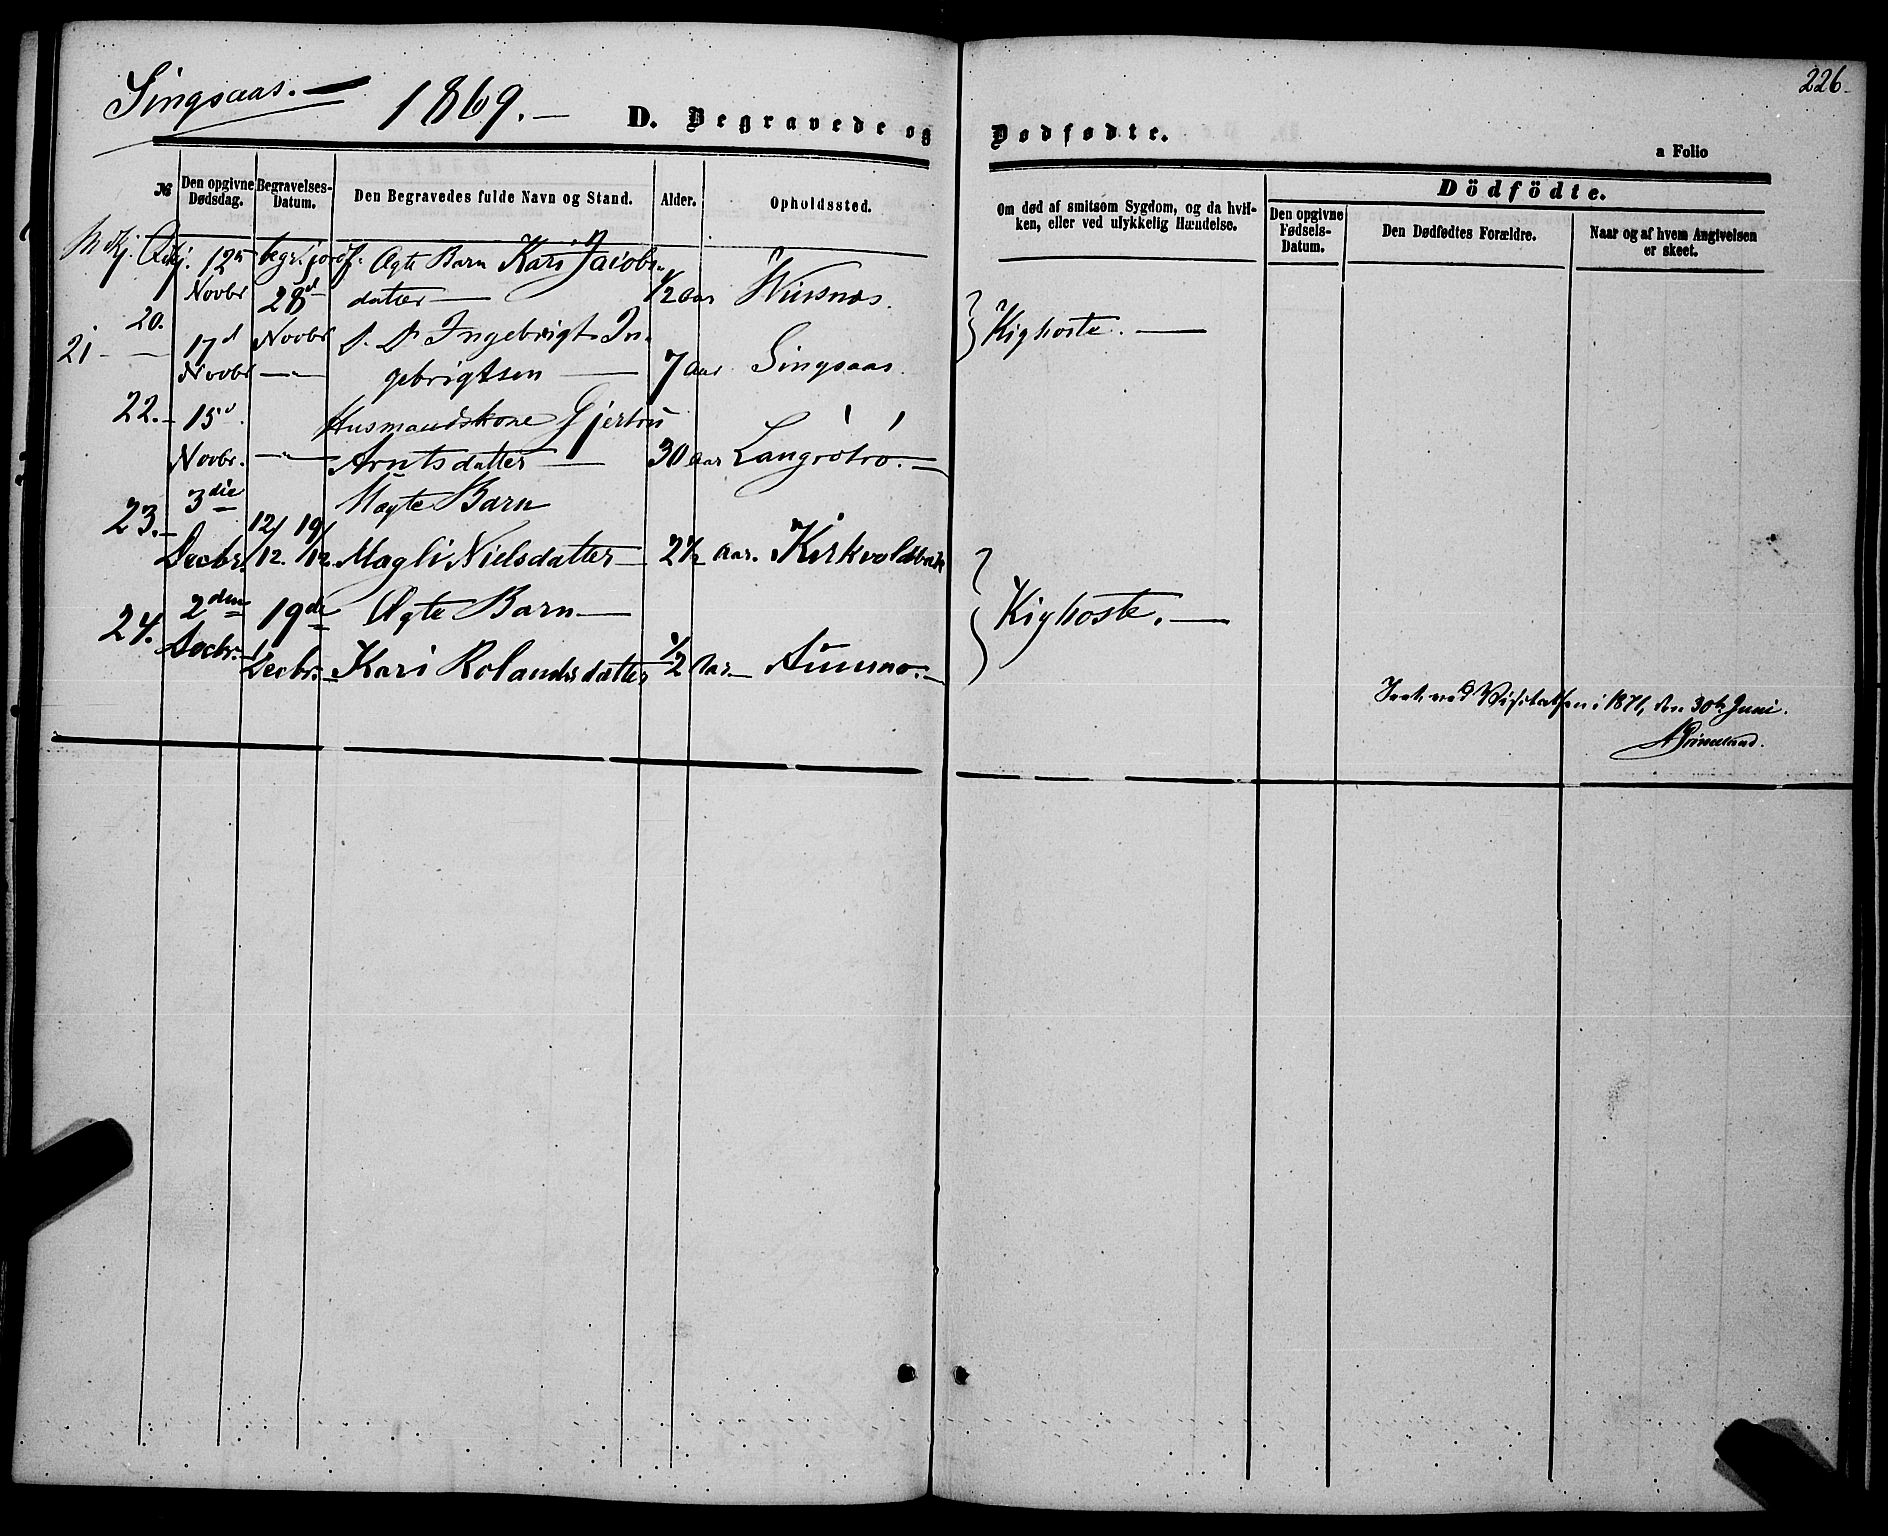 Singsaas.
1869.
D. Begravede og Dødfødte.
226
a Folio
№
Den opgivne Dødsdag.
Begravelses-Datum.
Den Begravedes fulde Navn og Stand.
Alder.
Opholdssted.
Om død af smitsom Sygdom, og da hvil-
ken, eller ved ulykkelig Hændelse.
Dödfödte.
Den opgivne Fødsels-Datum.
Den Dødfødtes Forældre.
Naar og af hvem Angivelsen er skeet.
M Kj. Qkj. 12 begr. jordf. Ægte Barn Kari Jacobs-
20. Novbr 28 datter 1/2 aar
Kighoste.
21 17d Novbr D. D. Ingebrigt In-
Novbr gebrigtsen 7 aar Singsaas.
22. 15d Husmandskone Gjertru
Novbr. Arntsdatter 30 aar
23. 3die Uægte Barn
Decbr. 12/12. 19/12 Magli Nielsdatter 2 1/2 aar.
24. 2den 19de Ægte Barn
Kighoste.
Decbr. Decbr. Kari Rolandsdatter 1/2 aar
ved Visitatsen i 1871, den 30te Juni.